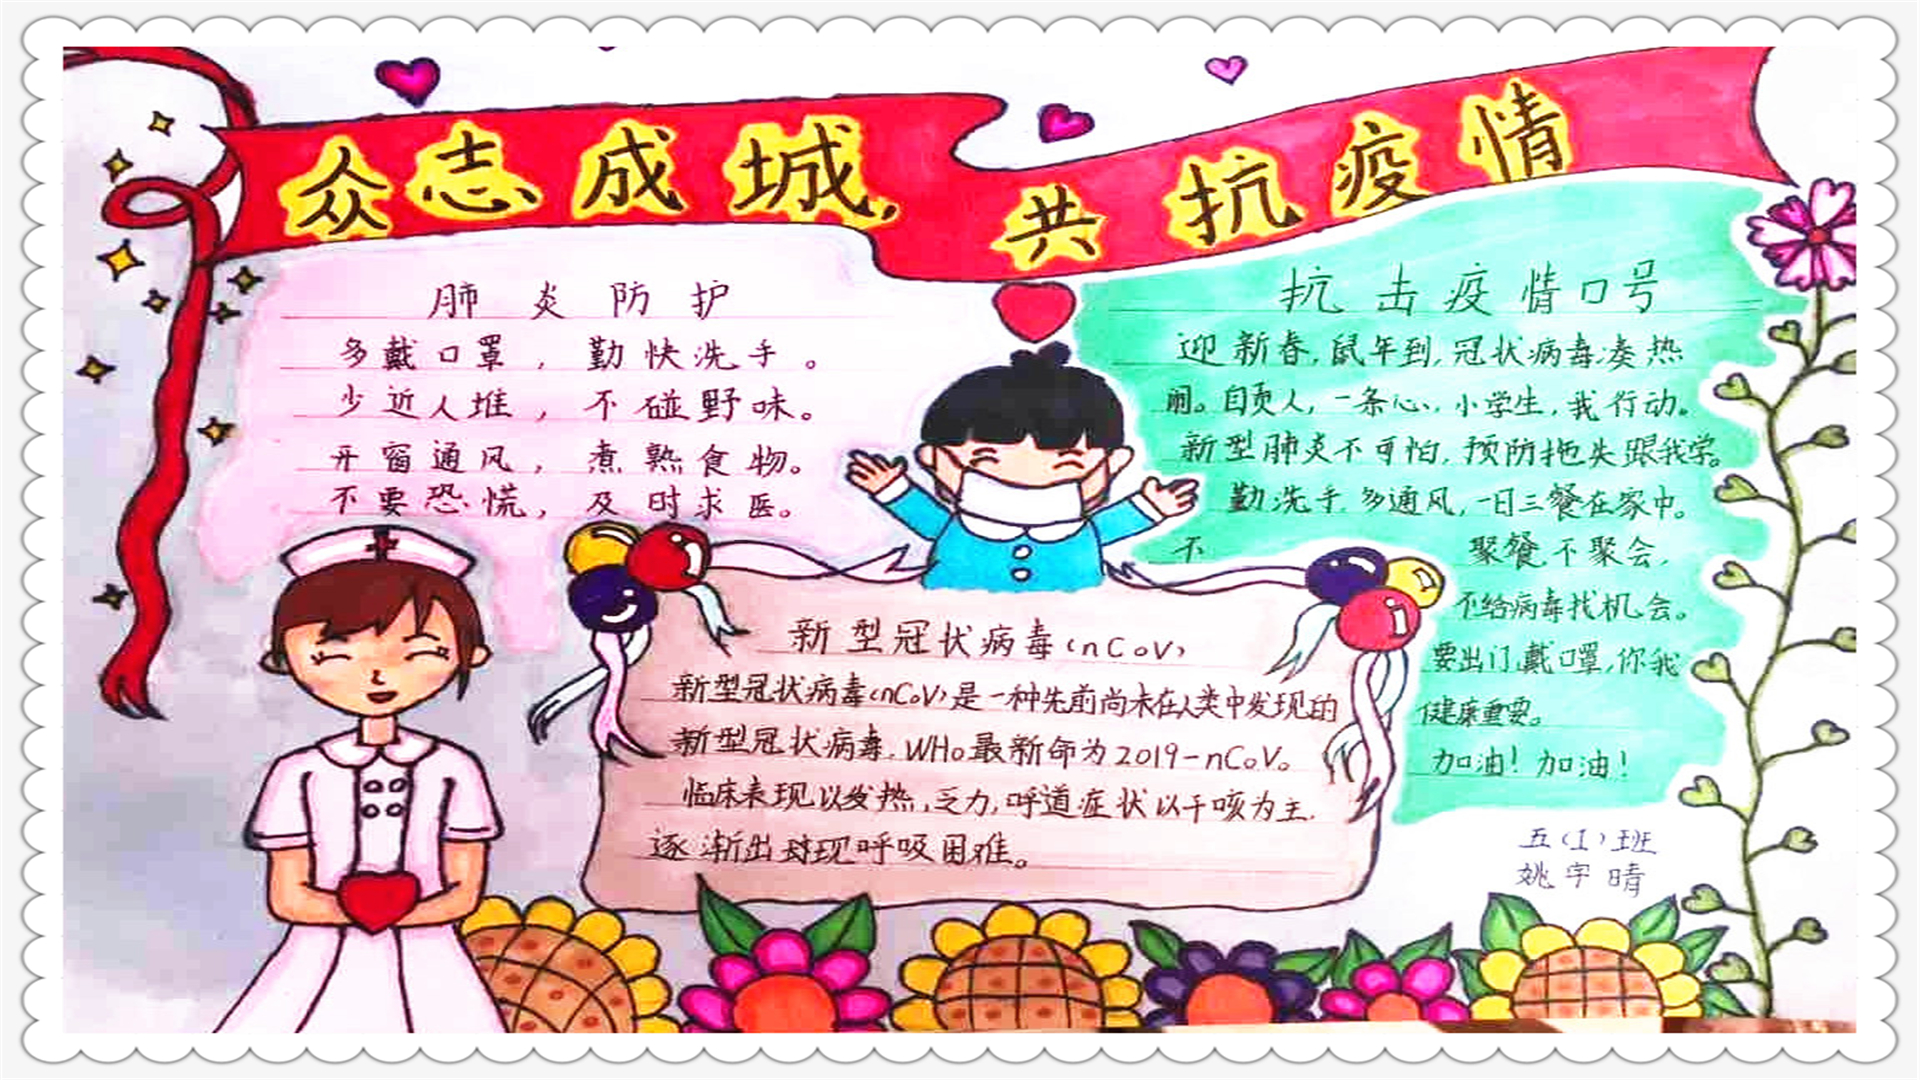 众志成城,共抗疫情
肺炎防护
多戴口罩，勤快洗手。
少近人堆，不碰野味。
开窗通风，煮熟食物。
不要恐慌，及时求医。
抗击疫情口号
迎新春,鼠年到,冠状病毒凑热
闹。自责人,一条心,小学生,我行动。
新型肺炎不可怕,预防拖失跟我学。
勤洗手,多通风,一日三餐在家中。
不聚餐,不聚会,
不给病毒找机会。
要出门,戴口罩,你我
健康重要。
加油！加油！
新型冠状病毒(nCoV)
新型冠状病毒(nCoV)是一种先前尚未在人类中发现的
新型冠状病毒.WHo最新命为2019-nCoV。
临床表现以发热,乏力,呼道症状以干咳为主.
逐渐出现呼吸困难。
五(1)班
姚宇晴